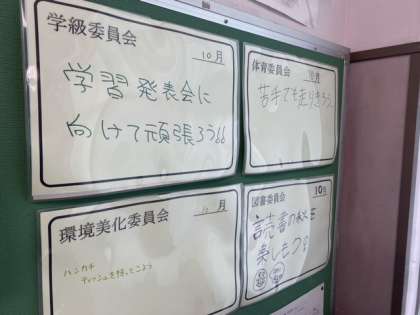 学級委員会
10月
学習発表会に
向けて頑張ろう
体育委員会
10月
苦手でも走りきろう
環境美化委員会
月
ハンカチ
ティッシュを持ってこよう
図書委員会
10月
読書の秋を
楽しもう!